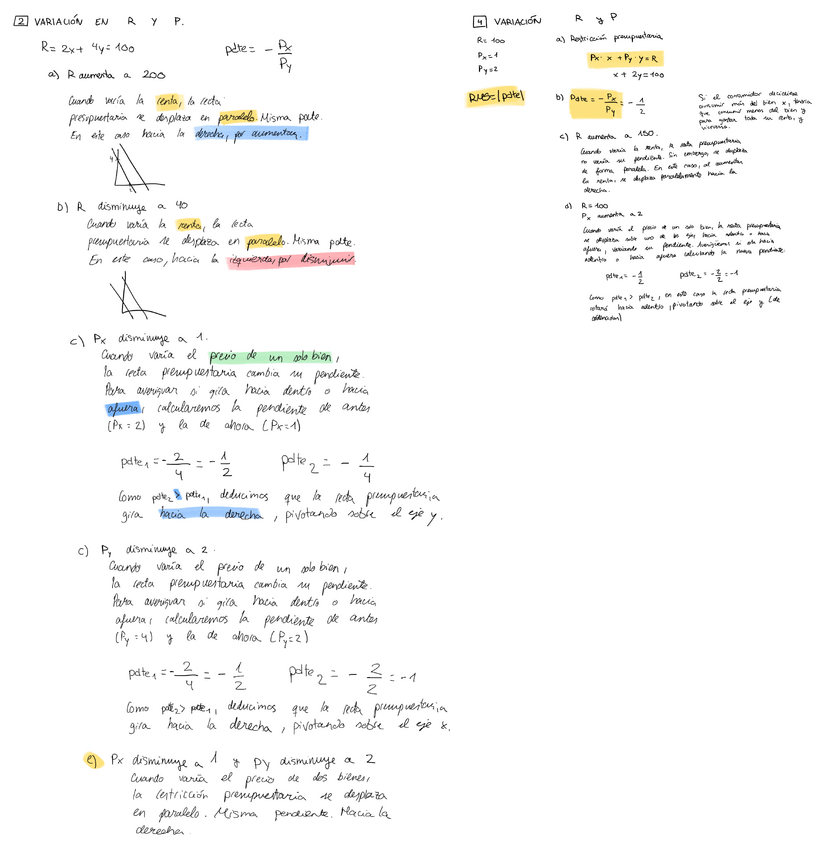 2 VARIACIÓN EN R Y P.
R = 2x + 4y = 100
pdte = - Px/Py
a) R aumenta a 200
Cuando varía la renta, la recta
presupuestaria se desplaza en paralelo. Misma pdte.
En este caso hacia la derecha, por aumentar.
b) R disminuye a 40
Cuando varía la renta, la recta
presupuestaria se desplaza en paralelo. Misma pdte.
En este caso, hacia la izquierda, por disminuir
c) Px disminuye a 1.
Cuando varía el precio de un solo bien,
la recta presupuestaria cambia su pendiente.
Para averiguar si gira hacia dentro o hacia
afuera, calcularemos la pendiente de antes
(Px = 2) y la de ahora (Px=1)
pdte1 = - 2/4 = - 1/2 pdte2 = - 1/4
Como pdte2 > pdte1, deducimos que la recta presupuestaria
gira hacia la derecha, pivotando sobre el eje y.
c) Py disminuye a 2.
Cuando varía el precio de un solo bien,
la recta presupuestaria cambia su pendiente.
Para averiguar si gira hacia dentro o hacia
afuera, calcularemos la pendiente de antes
(Py = 4) y la de ahora (Py=2)
pdte1 = - 2/4 = - 1/2 pdte2 = - 2/2 = -1
Como pdte2 > pdte1, deducimos que la recta presupuestaria
gira hacia la derecha, pivotando sobre el eje x.
e) Px disminuye a 1 y Py disminuye a 2
Cuando varía el precio de dos bienes,
la restricción presupuestaria se desplaza
en paralelo. Misma pendiente. Hacia la
derecha.
4 VARIACIÓN R y P
R = 100
Px = 1
Py = 2
RMS = |pdte|
a) Restricción presupuestaria
Px · x + Py · y = R
x + 2y = 100
b) Pdte = - Px/Py = - 1/2
Si el consumidor decidiese
consumir más del bien x, tendría
que consumir menos del bien y
para gastar toda su renta, y
viceversa.
c) R aumenta a 150.
Cuando varía la renta, la recta presupuestaria
no varía su pendiente. Sin embargo, se desplaza
de forma paralela. En este caso, al aumentar
la renta, se desplaza paralelamente hacia la
derecha.
d) R = 100
Px aumenta a 2
Cuando varía el precio de un solo bien, la recta presupuestaria
se desplaza sobre uno de los ejes hacia adentro o hacia
afuera, variando su pendiente. Averiguamos si es hacia
adentro o hacia afuera calculando la nueva pendiente.
pdte1 = - 1/2 pdte2 = - 2/2 = -1
Como pdte1 > pdte2, en este caso la recta presupuestaria
rotará hacia adentro, pivotando sobre el eje y (de
ordenadas)